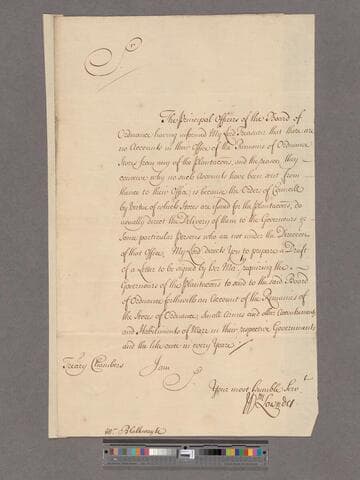 Sr
The Principal Officers of the Board of
Ordnance having informed My Lord Treasurer that there are
no Accounts in their Office of the Remains of Ordnance
Stores from any of the Plantacons, and the reason they
conceive why no such Accounts have been sent from
thence to their Office is because the Orders of Councill
by vertue of which Stores are issued for the Plantacons, do
usually direct the Delivery of them to the Governours or
Some particular Persons who are not under the Direccon
of that Office, My Lord directs You to prepare a Draft
of a Letter to be signed by her Maty requiring the
Governours of the Plantacons to send to the said Board
of Ordnance forthwith an Account of the Remaines of
the Stores of Ordnance, Small Armes and other
and Habiliments of Warr in their respective Governments
and the like once in every Yeare
Treary Chambers I am
Sr
Your most humble Servt
Wm Lowndes
Mr Blathwayte